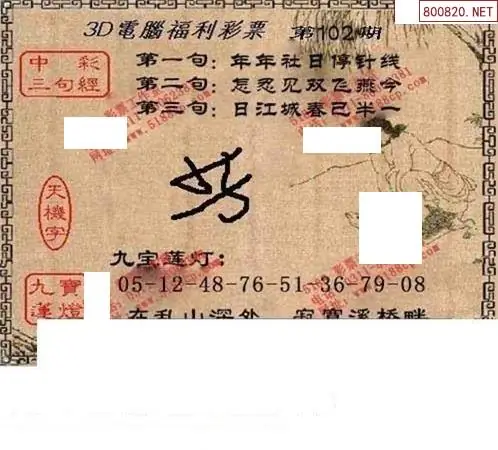 800820.NET
3D電腦福利彩票 第102期
中彩
三句經
第一句：年年社日停针线
第二句：怎忍见双飞燕今
第三句：日江城春已半一
天機字
九宝莲灯：
九寶
蓮燈
05-12-48-76-51-36-79-08
在乱山深处 寂寞溪桥畔